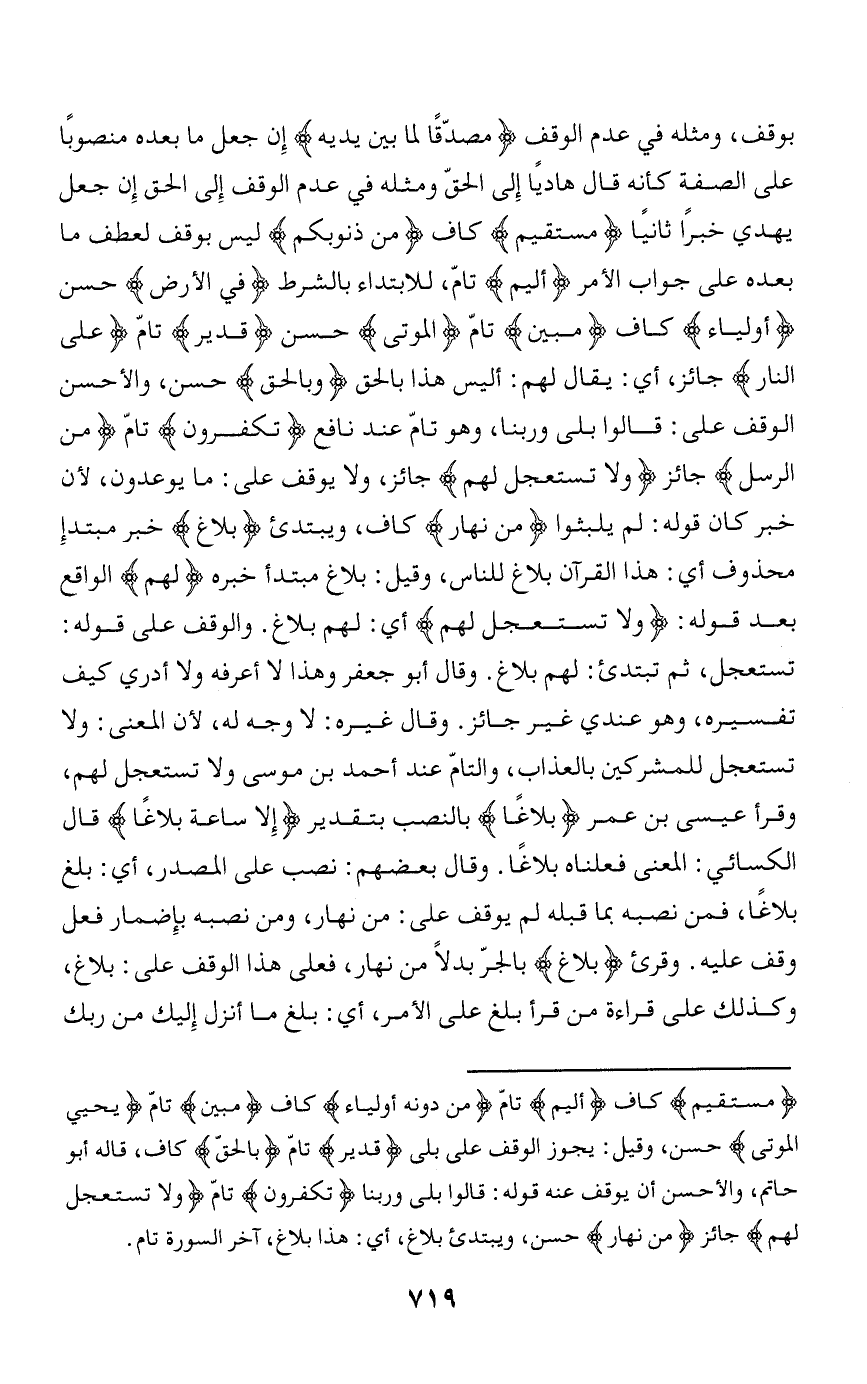 بوقف، ومثله في عدم الوقف ﴿ مصدّقًا لما بين يديه ﴾ إن جعل ما بعده منصوبًا
على الصفة كأنه قال هاديًا إلى الحقّ ومثله في عدم الوقف إلى الحق إن جعل
يهدي خبرًا ثانيًا ﴿ مستقيم ﴾ كاف ﴿ من ذنوبكم ﴾ ليس بوقف لعطف ما
بعده على جواب الأمر ﴿ أليم ﴾ تامّ، للابتداء بالشرط ﴿ في الأرض ﴾ حسن
﴿ أولياء ﴾ كاف ﴿ مبين ﴾ تامّ ﴿ الموتى ﴾ حسن ﴿ قدير ﴾ تامّ ﴿ على
النار ﴾ جائز، أي: يقال لهم: أليس هذا بالحق ﴿ وبالحق ﴾ حسن، والأحسن
الوقف على: قالوا بلى وربنا، وهو تامّ عند نافع ﴿ تكفرون ﴾ تامّ ﴿ من
الرسل ﴾ جائز ﴿ ولا تستعجل لهم ﴾ جائز، ولا يوقف على: ما يوعدون، لأن
خبر كان قوله: لم يلبثوا ﴿ من نهار ﴾ كاف، ويبتدئ ﴿ بلاغ ﴾ خبر مبتدإ
محذوف أي: هذا القرآن بلاغ للناس، وقيل: بلاغ مبتدأ خبره ﴿ لهم ﴾ الواقع
بعد قوله: ﴿ ولا تستعجل لهم ﴾ أي: لهم بلاغ. والوقف على قوله:
تستعجل، ثم تبتدئ: لهم بلاغ. وقال أبو جعفر وهذا لا أعرفه ولا أدري كيف
تفسيره، وهو عندي غير جائز. وقال غيره: لا وجه له، لأن المعنى: ولا
تستعجل للمشركين بالعذاب، والتامّ عند أحمد بن موسى ولا تستعجل لهم،
وقرأ عيسى بن عمر ﴿ بلاغًا ﴾ بالنصب بتقدير ﴿ إلا ساعة بلاغًا ﴾ قال
الكسائي: المعنى فعلناه بلاغًا. وقال بعضهم: نصب على المصدر، أي: بلغ
بلاغًا، فمن نصبه بما قبله لم يوقف على: من نهار، ومن نصبه بإضمار فعل
وقف عليه. وقرئ ﴿ بلاغ ﴾ بالجرّ بدلاً من نهار، فعلى هذا الوقف على: بلاغ،
وكذلك على قراءة من قرأ بلغ على الأمر، أي: بلغ ما أنزل إليك من ربك
﴿ مستقيم ﴾ كاف ﴿ أليم ﴾ تامّ ﴿ من دونه أولياء ﴾ كاف ﴿ مبين ﴾ تامّ ﴿ يحيي
الموتى ﴾ حسن، وقيل: يجوز الوقف على بلى ﴿ قدير ﴾ تامّ ﴿ بالحقّ ﴾ كاف، قاله أبو
حاتم، والأحسن أن يوقف عنه قوله: قالوا بلى وربنا ﴿ تكفرون ﴾ تامّ ﴿ ولا تستعجل
لهم ﴾ جائز ﴿ من نهار ﴾ حسن، ويبتدئ بلاغ، أي: هذا بلاغ، آخر السورة تام.
٧١٩